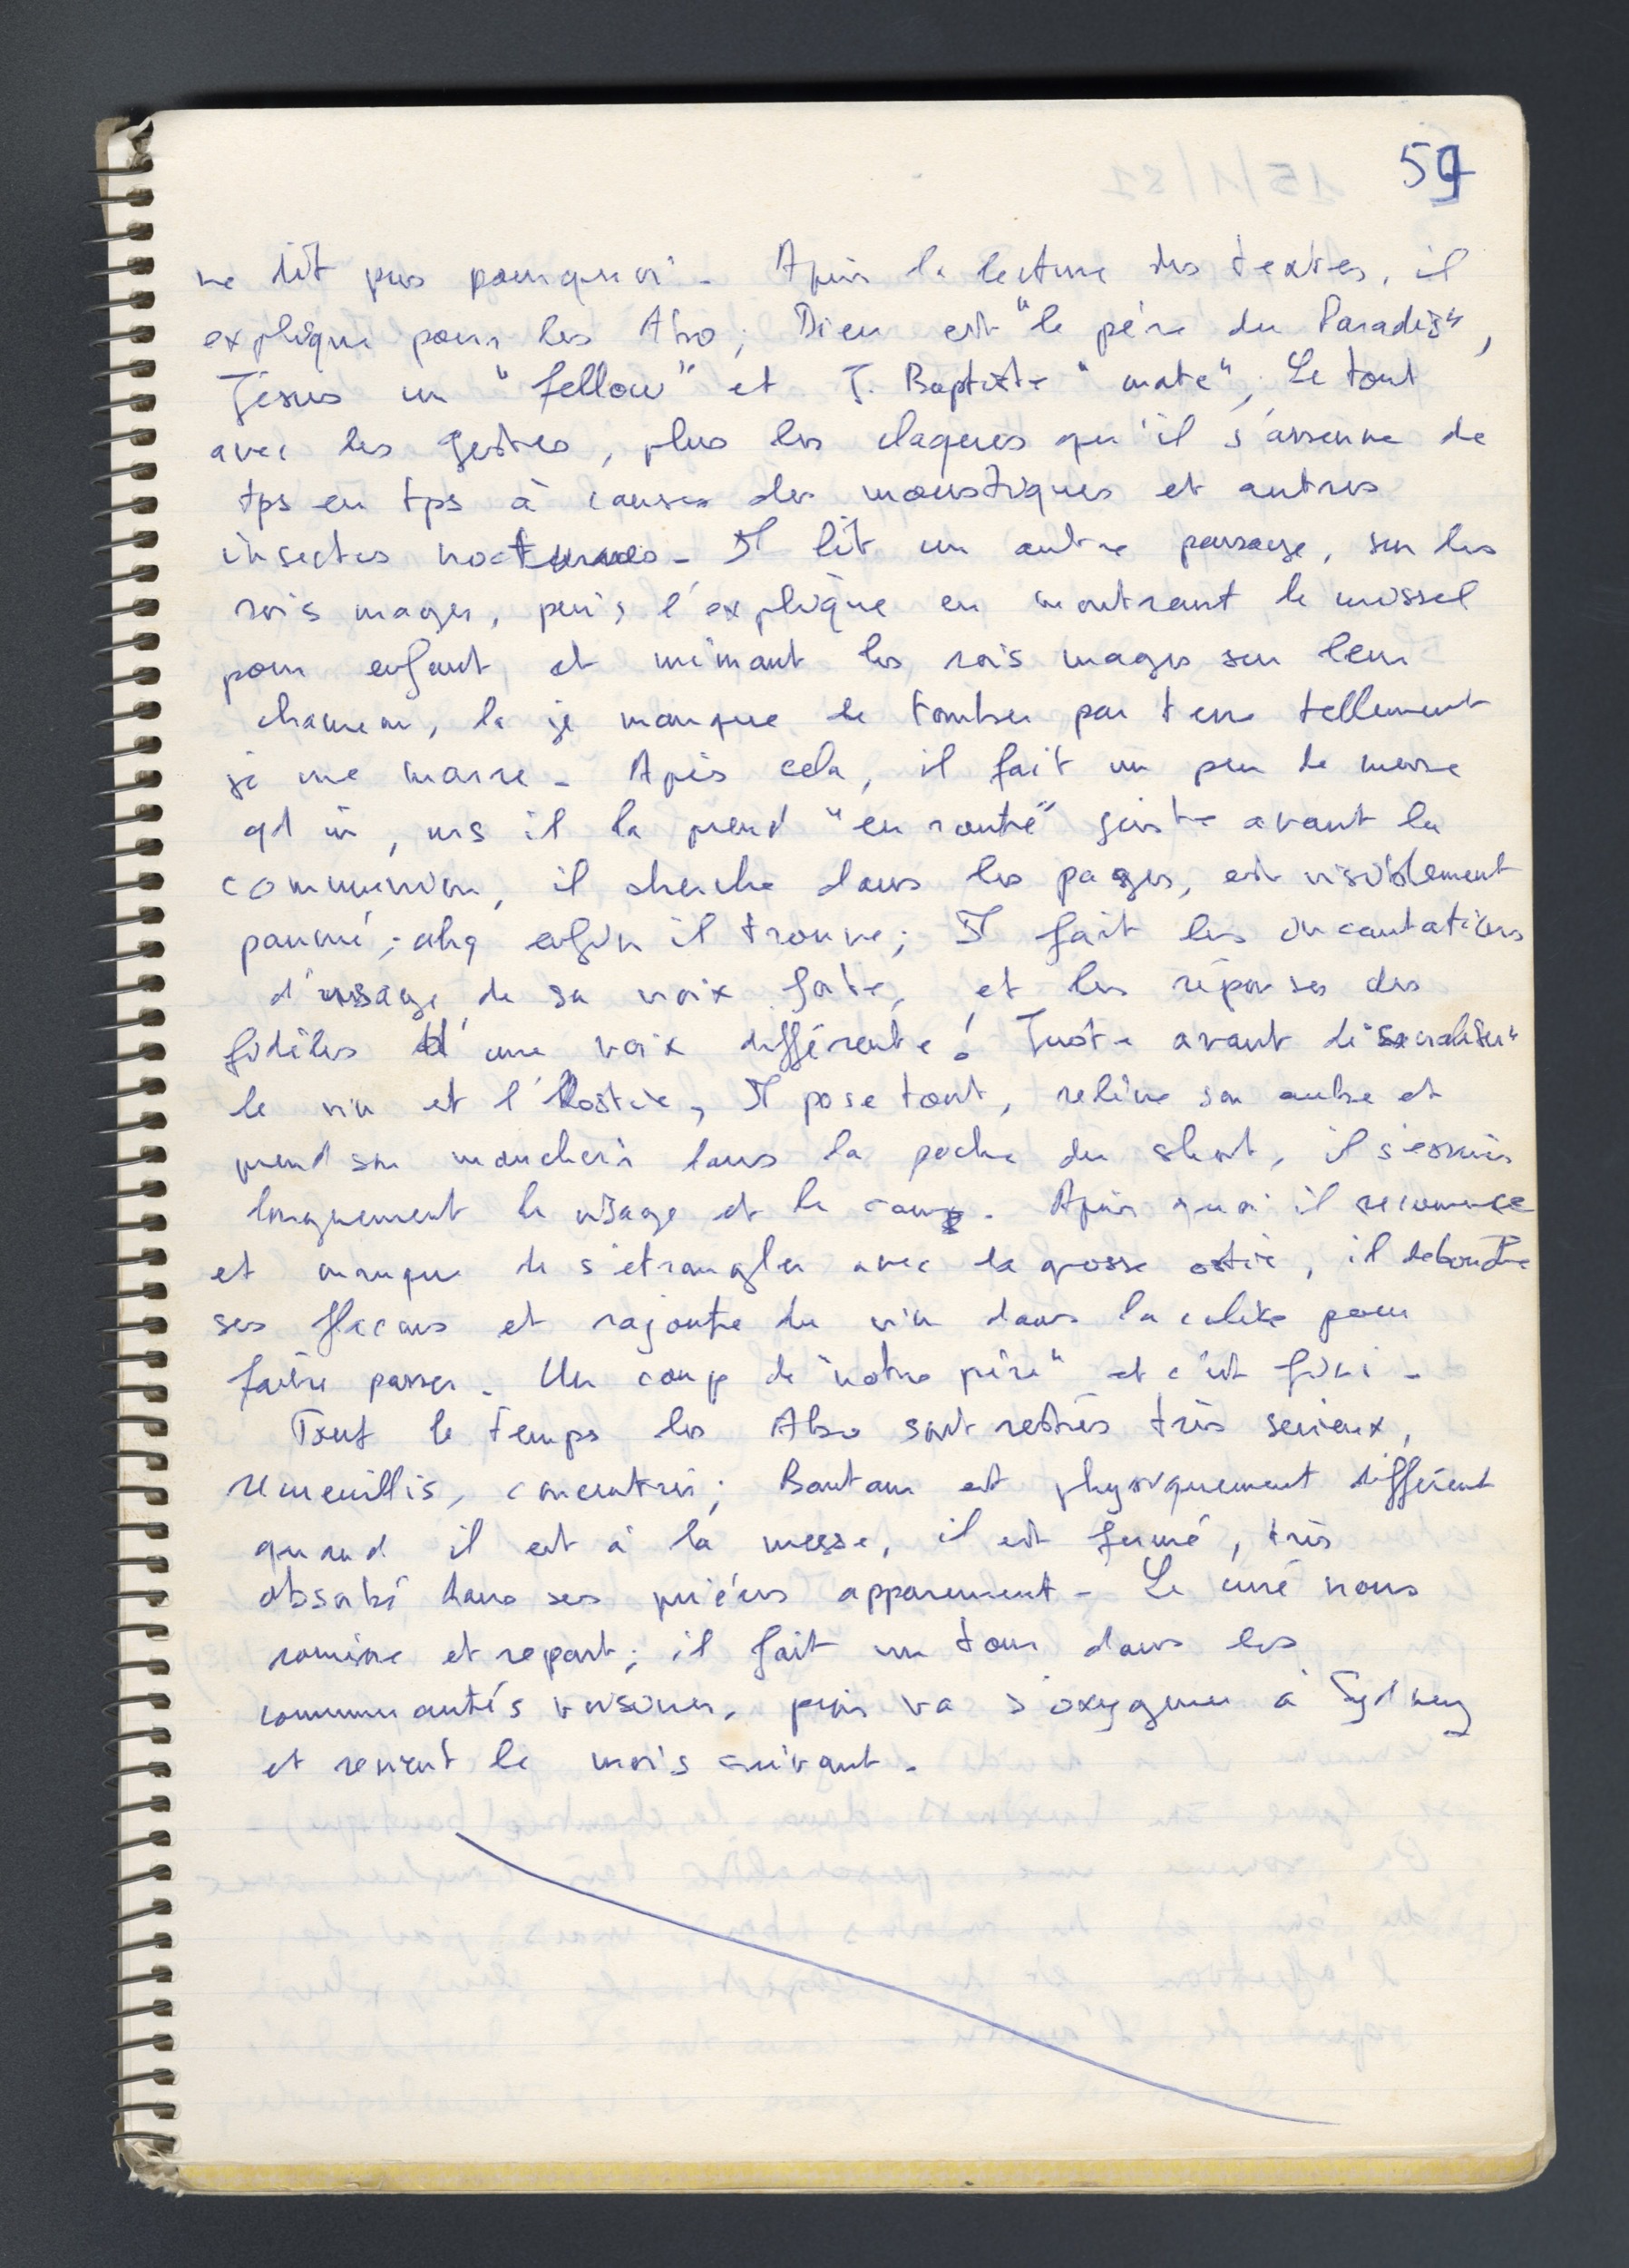 59
ne dit pas pourquoi - Après la lecture des textes, il
explique pour les Abo; Dieu est "le père du Paradis",
Jésus un "fellow" et J. Baptiste "mate", Le tout
avec les gestes, plus les claques qu'il s'assenne de
tps en tps à causes des moustiques et autres
insectes nocturnes - Il lit un autre passage, sur les
rois mages, puis l'explique en montrant le missel
pour enfant, et mimant les rois mages sur leur
chameau, la je manque de tomber par terre tellement
je me marre - Après cela, il fait un peu de messe
qd m̂, ms il la prend "en route" juste avant la
communion, il cherche dans les pages, est visiblement
paumé; enfin il trouve; Il fait les incantations
d'usage de sa voix forte, et les réponses des
fidèles d'une voix différente! Juste avant de "sacraliser"
le vin et l'Hostie, Il pose tout, relève son aube et
prend son mouchoir dans la poche du short, il s'essuie
longuement le visage et le cou. Après quoi il recommence
et manque de s'étrangler avec la grosse ostie, il débouche
ses flacons et rajoute du vin dans la calice pour
faire passer. Un coup de "notre père" et c'est fini -
Tout le temps les Abo sont restés très serieux,
recueillis, concentrés; Bantam est physiquement différent
quand il est à la messe, il est fermé, très
absorbé dans ses prières apparement - Le curé nous
ramène et repart; il fait un tour dans les
communautés voisines, puis va s'oxygener à Sydney
et revient le mois suivant.